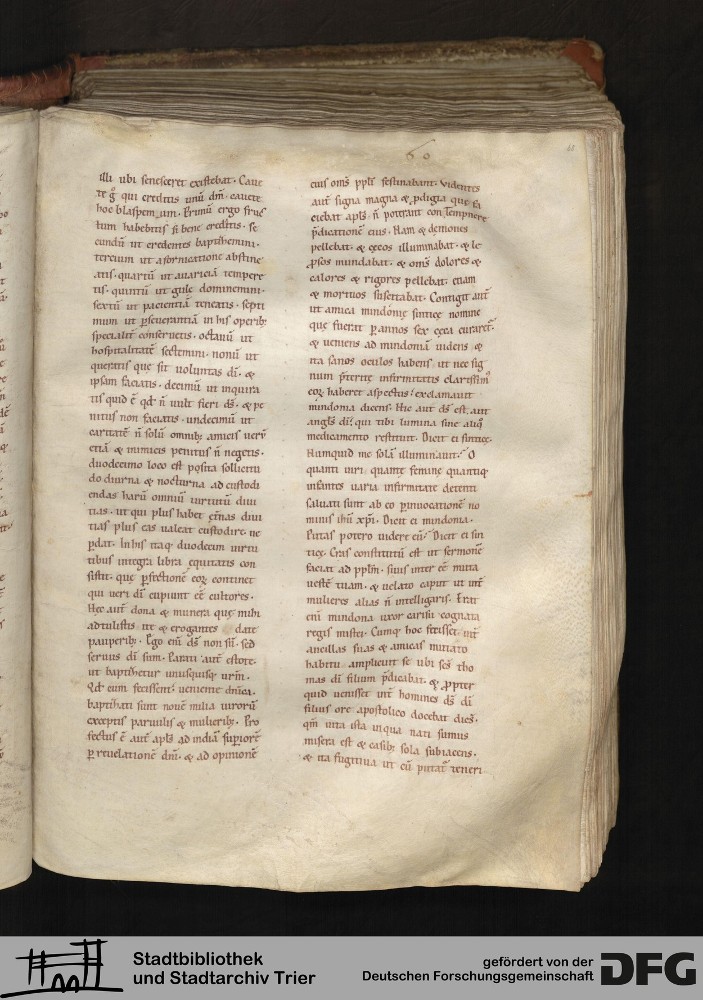 60
illi ubi senesceret existebat. Caue
te g̊ qui creditis unū dm̄. cauete
hoc blasphemium. Primū ergo fruc
tum habebitis si bene creditis. se
cundū ut credentes baptizemini.
tercium ut a fornicatione abstine
atis. quartū ut auariciā tempere
tis. quintū ut gulę dominemini.
sextū ut pacientiā teneatis. septi
mum ut pseuerantiā in his operib;
specialit̄ conseruetis. octauū ut
hospitalitatē sectemini. nonū ut
queratis que sit uoluntas dī. &
ipsam faciatis. decimū ut inquira
tis quid ē qd̄ n̄ uult fieri ds̄. & pe
nitus non faciatis. undecimū ut
caritatē n̄ solū omnib; amicis uerū
etiā & inimicis penitus n̄ negetis.
duodecimo loco est posita sollicitu
do diurna & nocturna ad custodi
endas harū omniū uirtutū diui
tias. ut qui plus habet diui
tias plus eas ualeat custodire. ne
pdat. In his itaq; duodecim uirtu
tibus integri libra equitatis con
sistit. que pfectionē eoȝ continet
qui ueri dī cupiunt eē cultores.
Hęc aut̄ dona & munera quę mihi
adtulistis ite & erogantes date
pauperib;. Ego enī ds̄ non sū. sed
seruus dī sum. Parati aut̄ estote.
ut baptizetur unusquisq; urm̄.
Qd̄ cum fecissent. ueniente dn̄ica.
baptizati sunt nouē milia uirorū
exceptis paruulis & mulierib;. Pro
fectus ē aut̄ apls̄ ad indiā supiorē
p reuelationē dn̄i. & ad opinionē
eius oms̄ ppli festinabant. uidentes
aut̄ signa magna & pdigia quę fa
ciebat apls̄. n̄ poterant contempnere
pdicationē eius. Nam & demones
pellebat. & cecos illuminabat. & le
psos mundabat. & oms̄ dolores &
calores & rigores pellebat. etiam
& mortuos suscitabat. Contigit aut̄
ut amica mindonię sintice nomine
quę fuerat p annos sex ceca curaret᷑.
& ueniens ad mindoniā uidens &
ita sanos oculos habens ut nec sig
num pteritę infirmitatis clarissim⁹
eoȝ haberet aspectus. exclamauit
mindonia dicens. Hic aut ds̄ est. aut
angls̄ dī. qui tibi lumina sine aliq̊
medicamento restituit. Dicit ei sintice.
Numquid me solā illuminauit? O
quanti uiri. quantę feminę quantiq;
infantes uaria infirmitate detenti
saluati sunt ab eo p inuocationē no
minis ihū xpī. Dicit ei mindonia.
Putas potero uidere eū? Dicit ei sin
tice. Cras constitutū est ut sermonē
faciat ad pplm̄. si uis inter eē muta
uestē tuam. & uelato caput ut int̄
mulieres alias n̄ intelligaris. Erat
enī mindona uxor carisii cognata
regis misdei. Cumq; hoc fecisset. int̄
ancillas suas & amicas mutato
habitu amplicuit se ubi scs̄ tho
mas dī filium pdicabat. & ppter
quid uenisset int̄ homines ds̄ dī
filius ore apostolico docebat dies.
qm̄ uita ista in qua nati sumus
misera est & casib; sola subiacens.
& ita fugitiua ut cū putat᷑ teneri
Stadtbibliothek
und Stadtarchiv Trier
gefördert von der
Deutschen Forschungsgemeinschaft
DFG